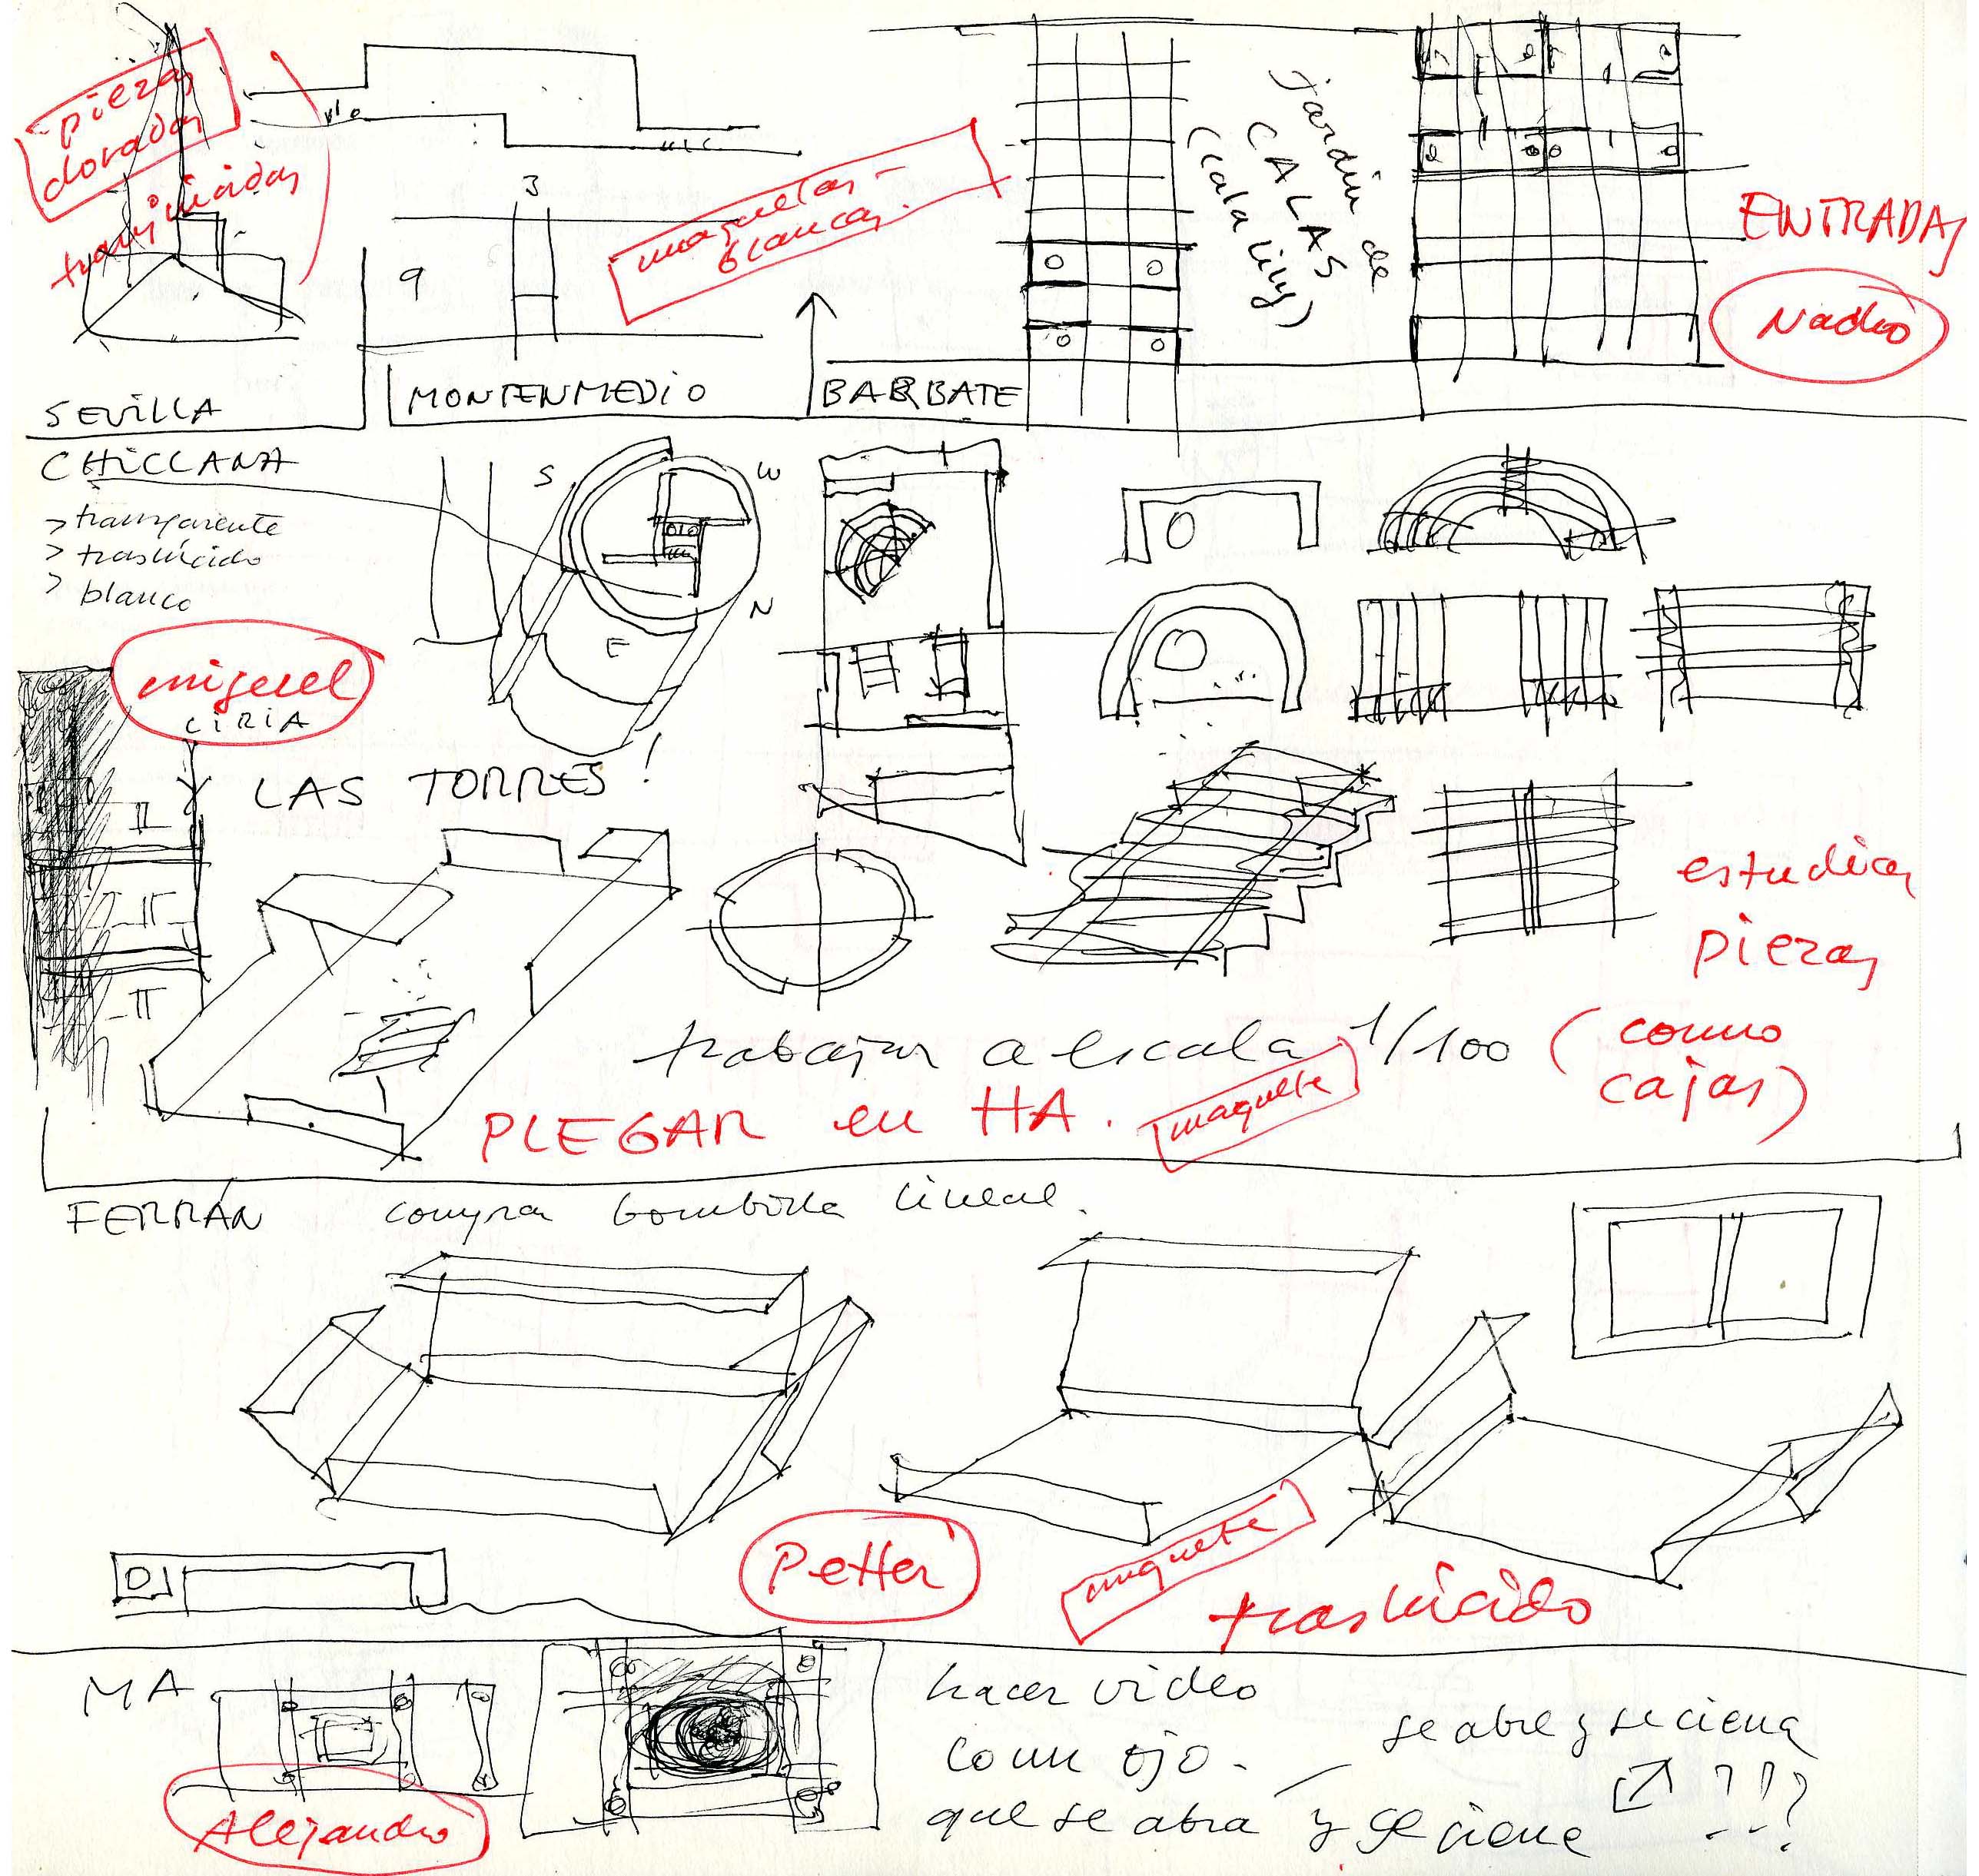 piezas
doradas
3
9
maquetas
blancas.
jardín de
CALAS
(cala lily)
ENTRADAS
SEVILLA
MONTENMEDIO
BARBATE
CHICLANA
> transparente
> traslúcido
> blanco
S
W
N
E
miguel
CIRIA
Y LAS TORRES!
estudiar
piezas
trabajar a escala 1/100 (como
cajas)
PLEGAR en HA.
maqueta
FERRÁN comprar bombilla lineal.
Petter
maqueta
traslúcido
MA
Alejandro
hacer video
como ojo.
que se abra y se cierre
se abre y se cierra
???